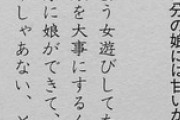 分の娘には甘いか
う女遊びして
を大事にする
に娘ができて、
ゃあない、